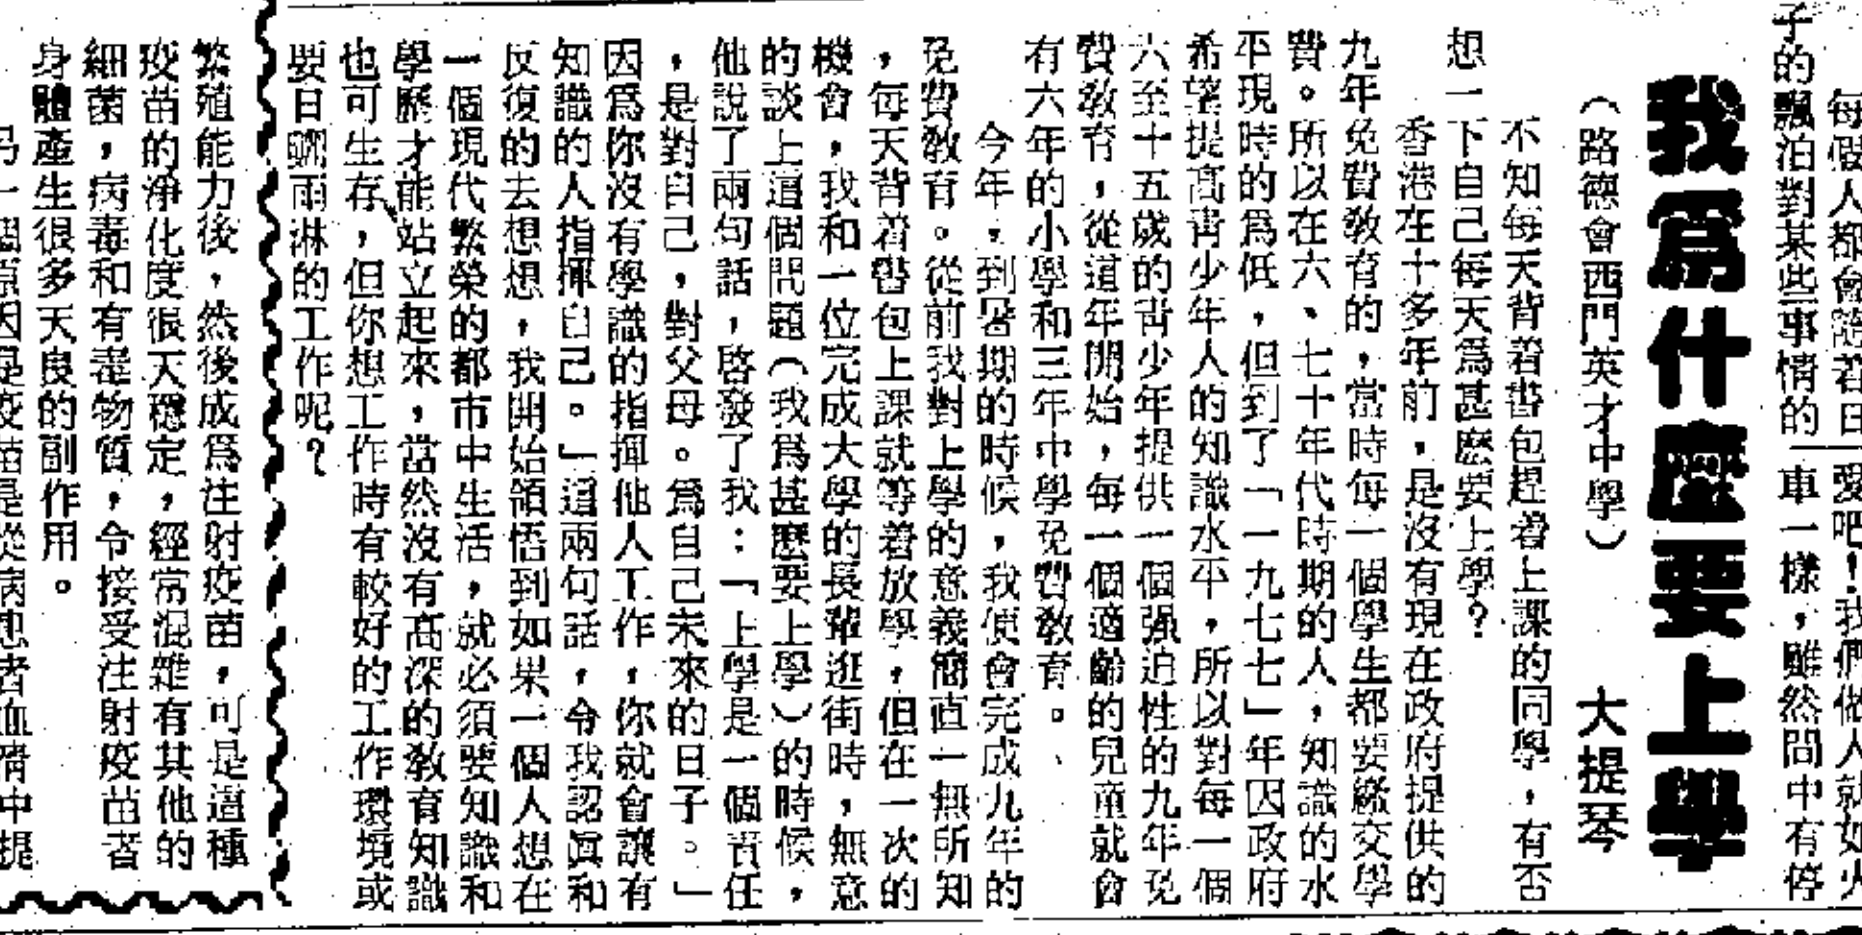 每個人都會
愛吧!我們做人就如火
子的飄泊對某些事情的
車一樣,雖然間中有停
我為什麼要上學
(路德會西門英才中學)
大提琴
不知每天背着書包趕着上課的同學,有否
想一下自己每天為甚麽要上學?
香港在十多年前,是沒有現在政府提供的
九年免費教育的,當時每一個學生都要繳交學
費。所以在六、七十年代時期的人,知識的水
平現時的為低,但到了「一九七七」年因政府
希望提高青少年人的知識水平,所以對每一個
六至十五歲的青少年提供一個强迫性的九年免
費教育,從這年開始,每一個適齡的兒童就會
有六年的小學和三年中學免費教育。
今年,到暑期的時候,我便會完成九年的
免費教育。從前我對上學的意義簡直一無所知
,每天背着書包上課就等着放學,但在一次的
機會,我和一位完成大學的長輩逛街時,無意
的談上這個問題(我為甚麽要上學)的時候,
他說了兩句話,啓發了我:「上學是一個責任
,是對自己,對父母。為自己未來的日子。」
因為你沒有學識的指揮他人工作,你就會讓有
知識的人指揮自己。」這兩句話,令我認真和
反復的去想想,我開始領悟到如果一個人想在
一個現代繁榮的都市中生活,就必須要知識和
學歷才能站立起來,當然沒有高深的教育知識
也可生存,但你想工作時有較好的工作環境或
要日曬雨淋的工作呢?
繁殖能力後,然後成為注射疫苗,可是這種
疫苗的淨化度很天穩定,經常混雜有其他的
細菌,病毒和有毒物質,令接受注射疫苗者
身體產生很多天良的副作用。
另一個原因是疫苗是從病患者血清中提